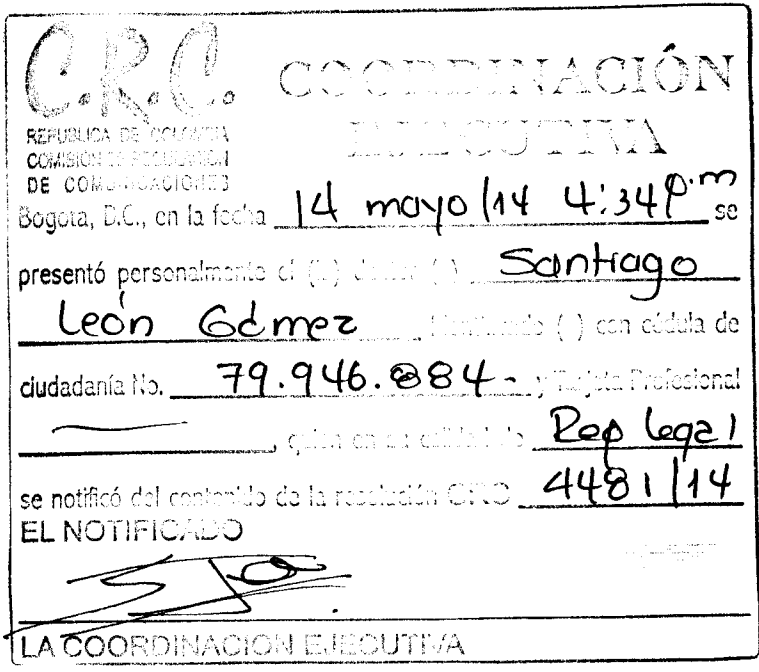 C.R.C.
COORDINACIÓN
EJECUTIVA
REPUBLICA DE COLOMBIA
COMISIÓN DE REGULACIÓN
DE COMUNICACIONES
Bogota, D.C., en la fecha 14 mayo/14 4:34 p.m se
presentó personalmente el (la) doctor ( ) Santiago
León Gómez identificado ( ) con cédula de
ciudadanía No. 79.946.884- y Tarjeta Profesional
, quien en su calidad de Rep legal
se notificó del contenido de la resolución CRC 4481/14
EL NOTIFICADO
LA COORDINACION EJECUTIVA